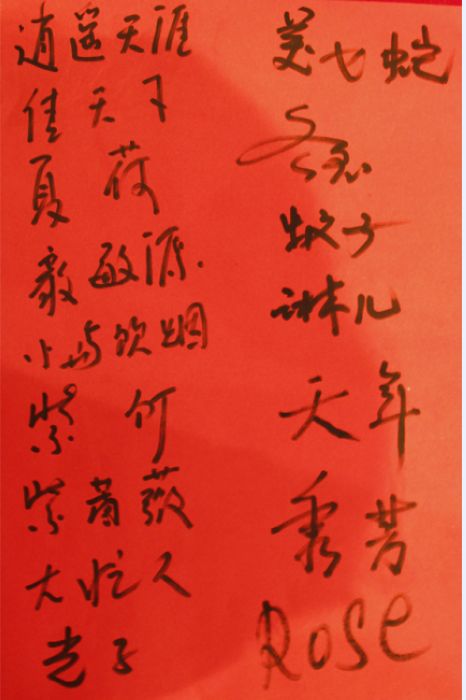 逍遥天涯
佳天下
夏荷
毅敏源
小马饮烟
紫竹
紫蔷薇
大忙人
老子
美女蛇
冬
蚊子
琳儿
天年
秀芳
Rose